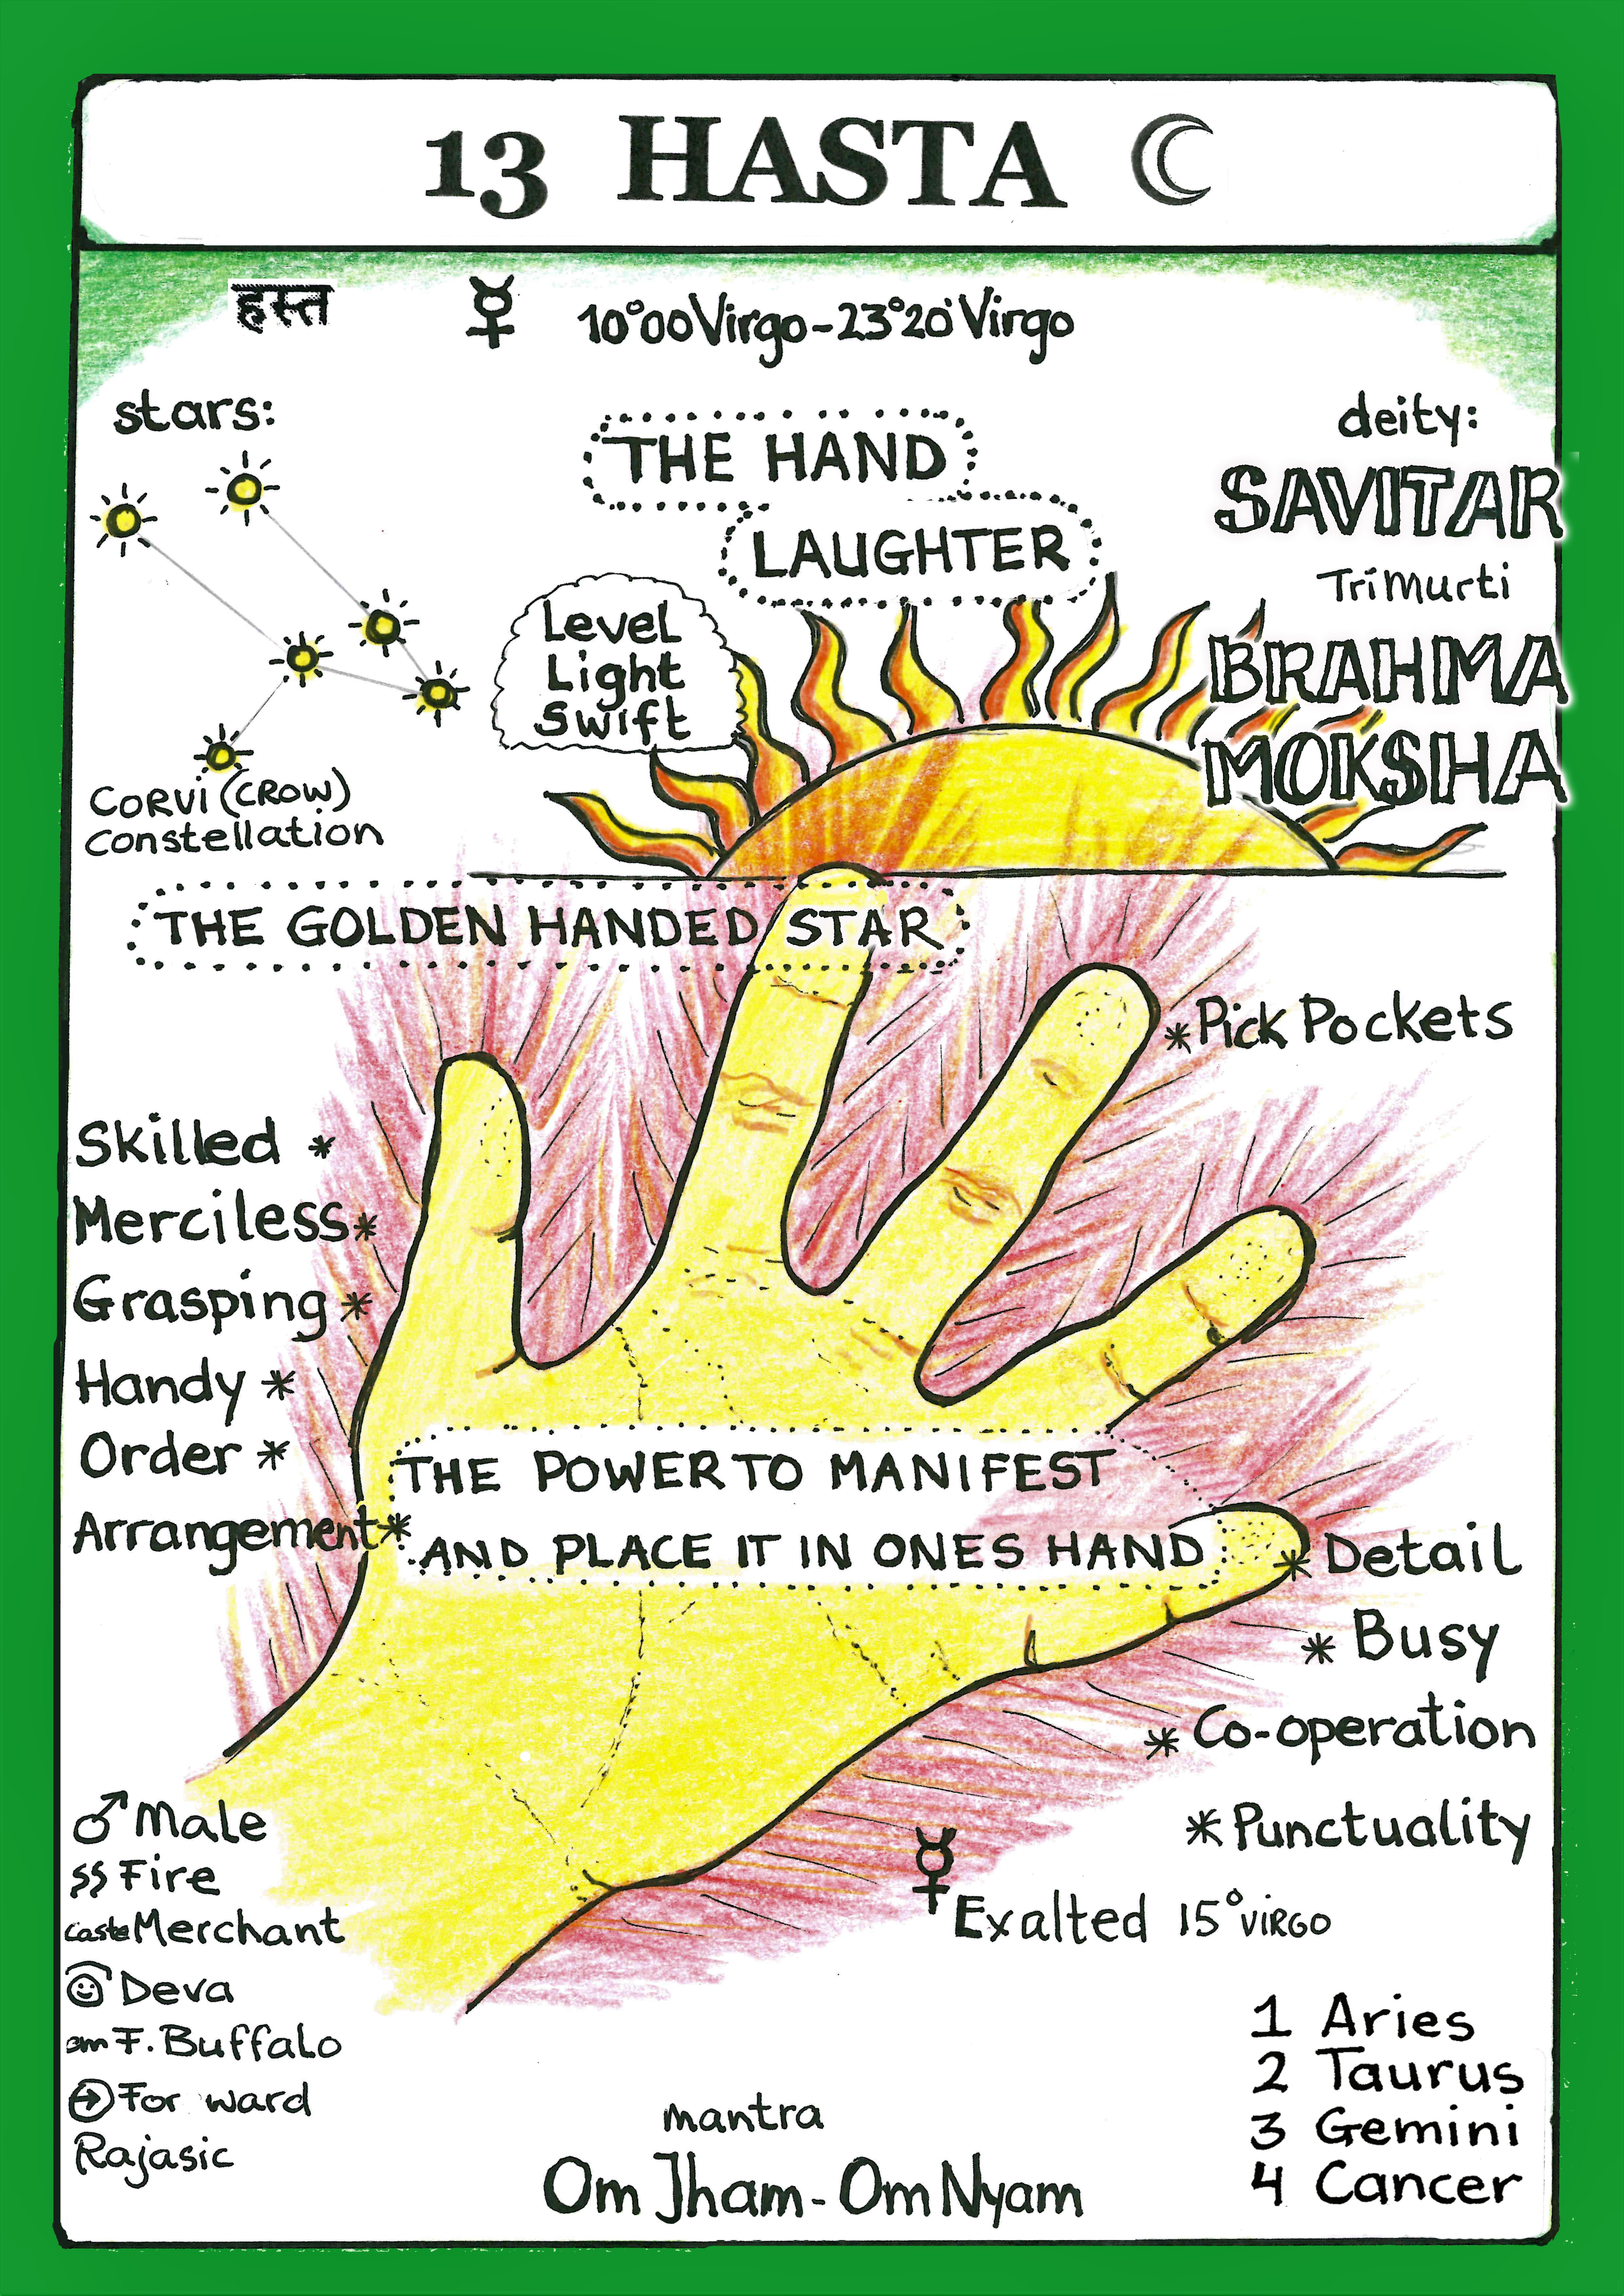 13 HASTA
हस्त
10°00 Virgo - 23°20' Virgo
stars:
THE HAND
LAUGHTER
deity:
SAVITAR
TriMurti
BRAHMA
MOKSHA
Level
Light
Swift
CORVI (CROW)
Constellation
THE GOLDEN HANDED STAR
*Pick Pockets
Skilled *
Merciless*
Grasping *
Handy *
Order *
Arrangement*
THE POWER TO MANIFEST
AND PLACE IT IN ONES HAND
* Detail
* Busy
* Co-operation
* Punctuality
Exalted 15° VIRGO
♂ Male
Fire
caste Merchant
Deva
F. Buffalo
For ward
Rajasic
mantra
Om Jham - Om Nyam
1 Aries
2 Taurus
3 Gemini
4 Cancer